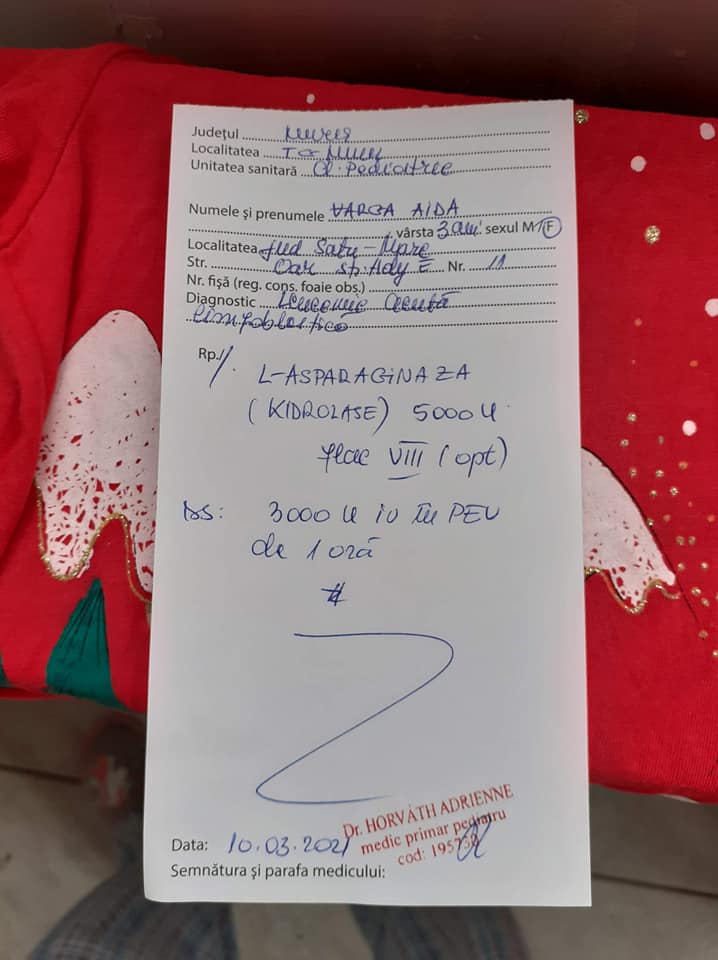 Judeţul Mureş
Localitatea TG Mureş
Unitatea sanitară Cl. Pediatrie
Numele şi prenumele VARGA AIDA
vârsta 3 ani sexul M/F
Localitatea Jud Satu-Mare
Str. Oar st. Ady E Nr. 11
Nr. fişă (reg. cons. foaie obs.)
Diagnostic Leucemie acută
limfoblastică
Rp./ 1.
L-ASPARAGINAZA
(KIDROLASE) 5000 U
flac VIII (opt)
DS: 3000 U iv în PEV
de 1 oră
#
Dr. HORVÁTH ADRIENNE
medic primar pediatru
cod: 195738
Data: 10.03.2021
Semnătura şi parafa medicului: